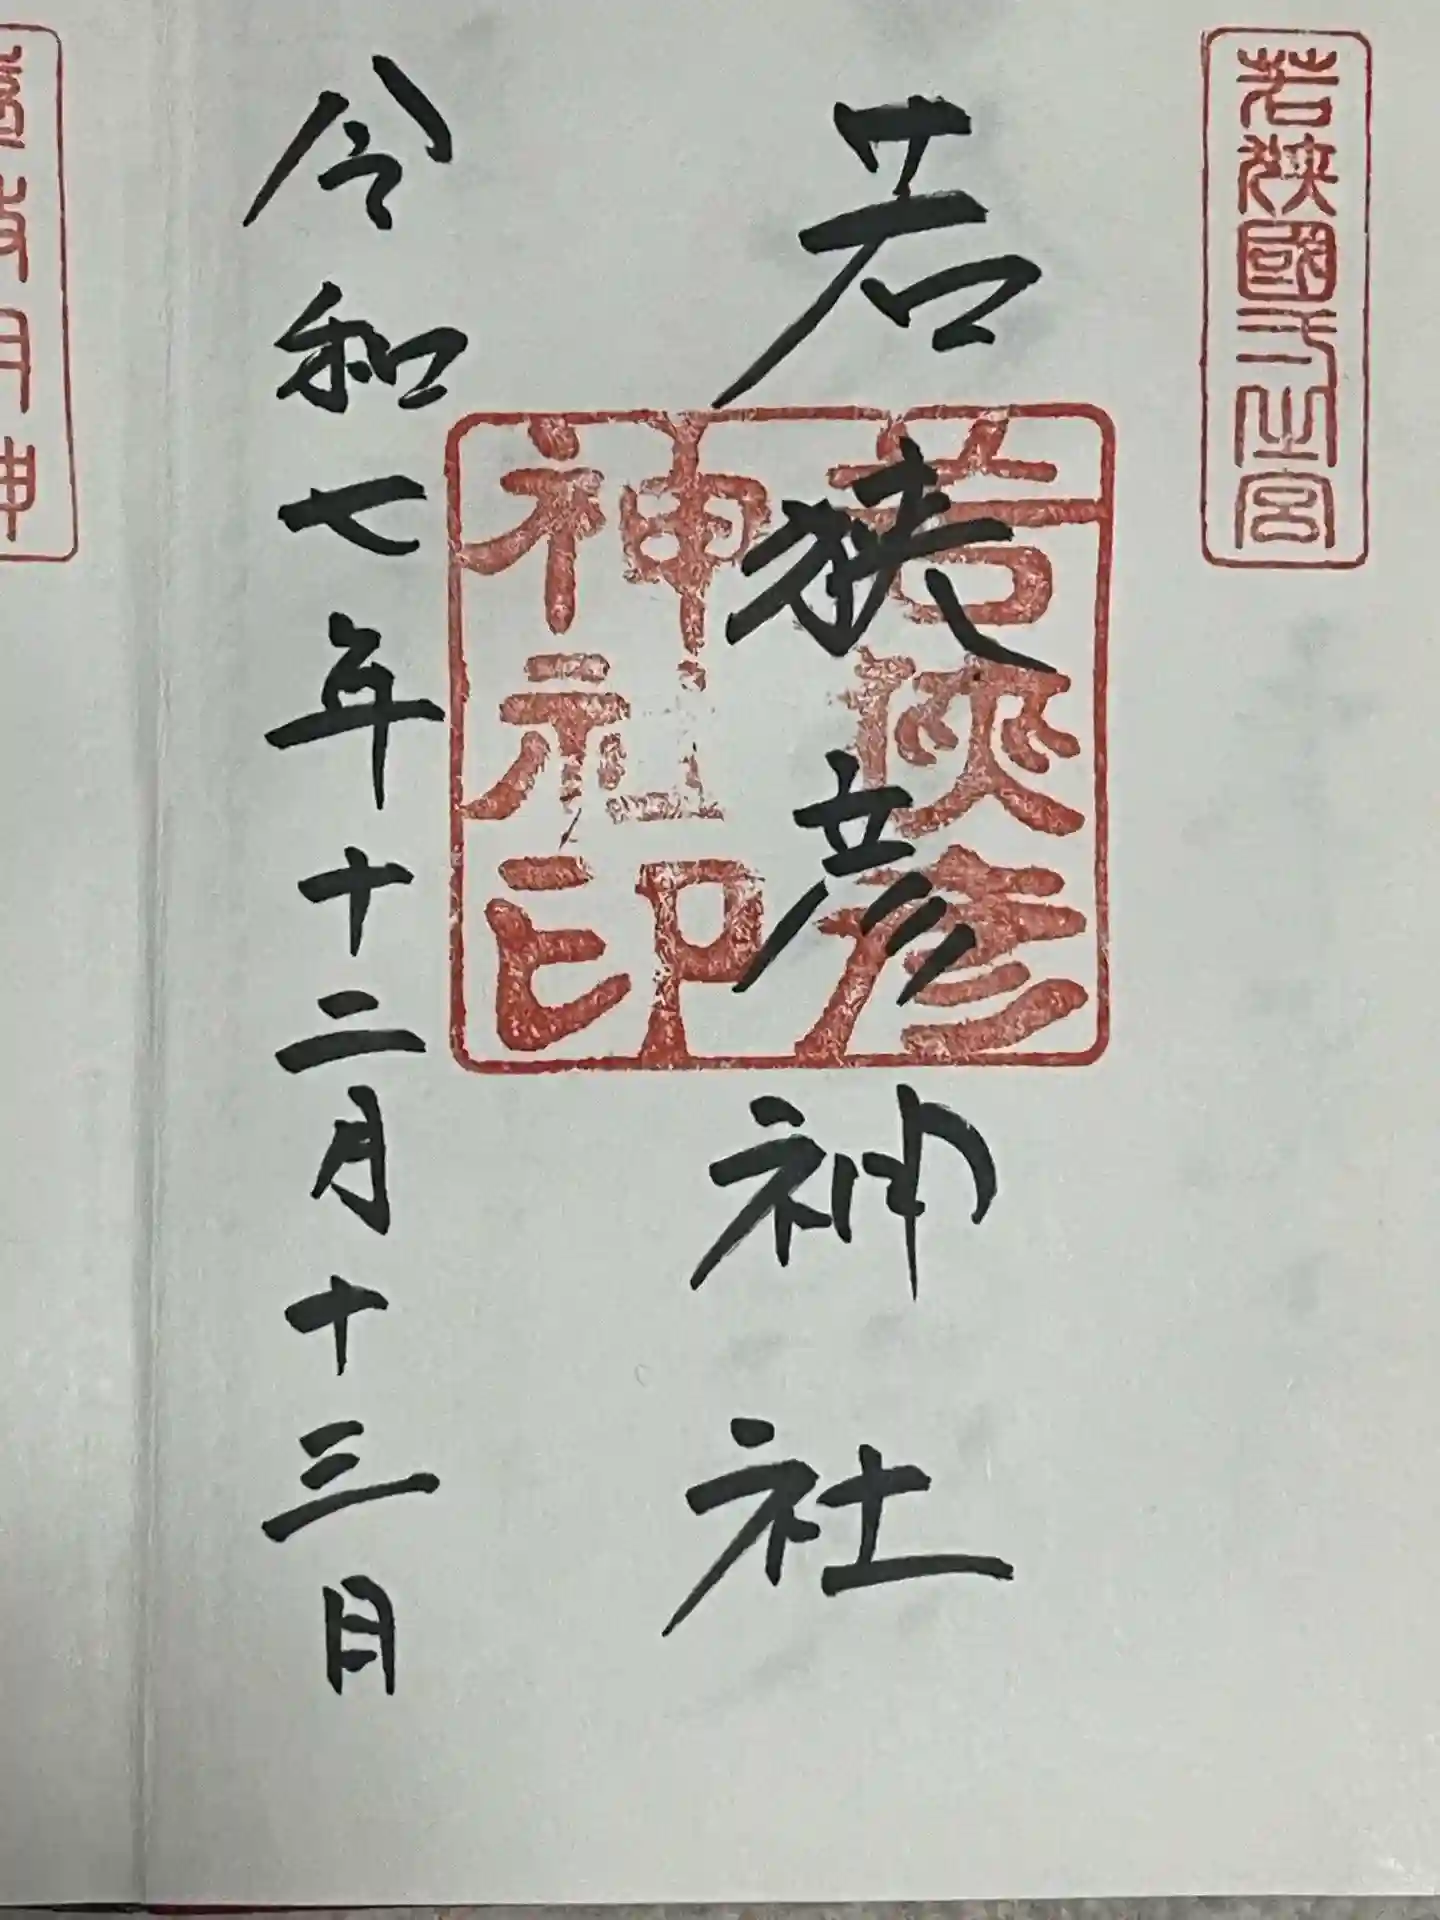 若狹國弌之宮
若狭彦神社
若狹彦
神社印
令和七年十二月十三日